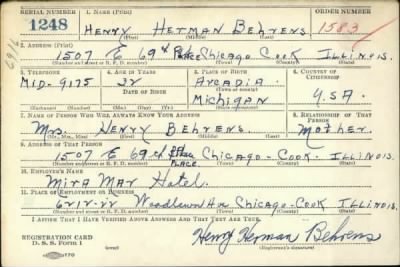 SERIAL NUMBER 1. NAME (Print) ORDER NUMBER
1248 HENRY HERMAN BEHRENS 1583
(First) (Middle) (Last)
2. ADDRESS (Print)
1507 E 69th PLACE CHICAGO COOK ILLINOIS.
(Number and street or R. F. D. number) (Town) (County) (State)
3. TELEPHONE 4. AGE IN YEARS 5. PLACE OF BIRTH 6. COUNTRY OF CITIZENSHIP
MID-9175 ARCADIA
DATE OF BIRTH (Town or county)
MICHIGAN U.S.A.
(Exchange) (No.) (Mo.) (Day) (Yr.) (State or country)
7. NAME OF PERSON WHO WILL ALWAYS KNOW YOUR ADDRESS 8. RELATIONSHIP OF THAT PERSON
MRS. HENRY BEHRENS MOTHER.
(Mr., Mrs., Miss) (First) (Middle) (Last)
9. ADDRESS OF THAT PERSON
1507 E 69th PLACE CHICAGO-COOK-ILLINOIS.
(Number and street or R. F. D. number) (Town) (County) (State)
10. EMPLOYER'S NAME
MIRA MAR HOTEL.
11. PLACE OF EMPLOYMENT OR BUSINESS
WOODLAWN AVE CHICAGO-COOK ILLINOIS.
(Number and street or R. F. D. number) (Town) (County) (State)
I AFFIRM THAT I HAVE VERIFIED ABOVE ANSWERS AND THAT THEY ARE TRUE.
REGISTRATION CARD
D. S. S. FORM 1 Henry Herman Behrens
(Registrant's signature)